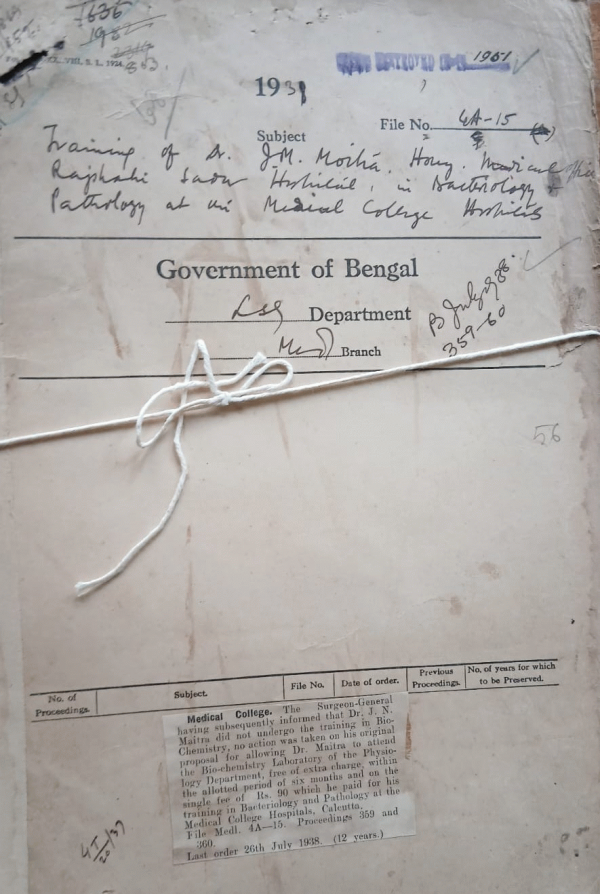 1951
1938
File No. 4A-15
Subject
Training of Dr. J.N. Moitra, Hony. Medical
Rajshahi Sadar Hospital, in Bacteriology &
Pathology at the Medical College Hospitals
Government of Bengal
LSG Department
Medl Branch
B July 38
359-60
56
No. of Proceedings. Subject. File No. Date of order. Previous Proceedings. No. of years for which to be Preserved.
Medical College. The Surgeon-General
having subsequently informed that Dr. J. N.
Maitra did not undergo the training in Bio-
Chemistry, no action was taken on his original
proposal for allowing Dr. Maitra to attend
the Bio-chemistry Laboratory of the Physio-
logy Department, free of extra charge, within
the allotted period of six months and on the
single fee of Rs. 90 which he paid for his
training in Bacteriology and Pathology at the
Medical College Hospitals, Calcutta.
File Medl. 4A—15. Proceedings 359 and
360.
Last order 26th July 1938. (12 years.)